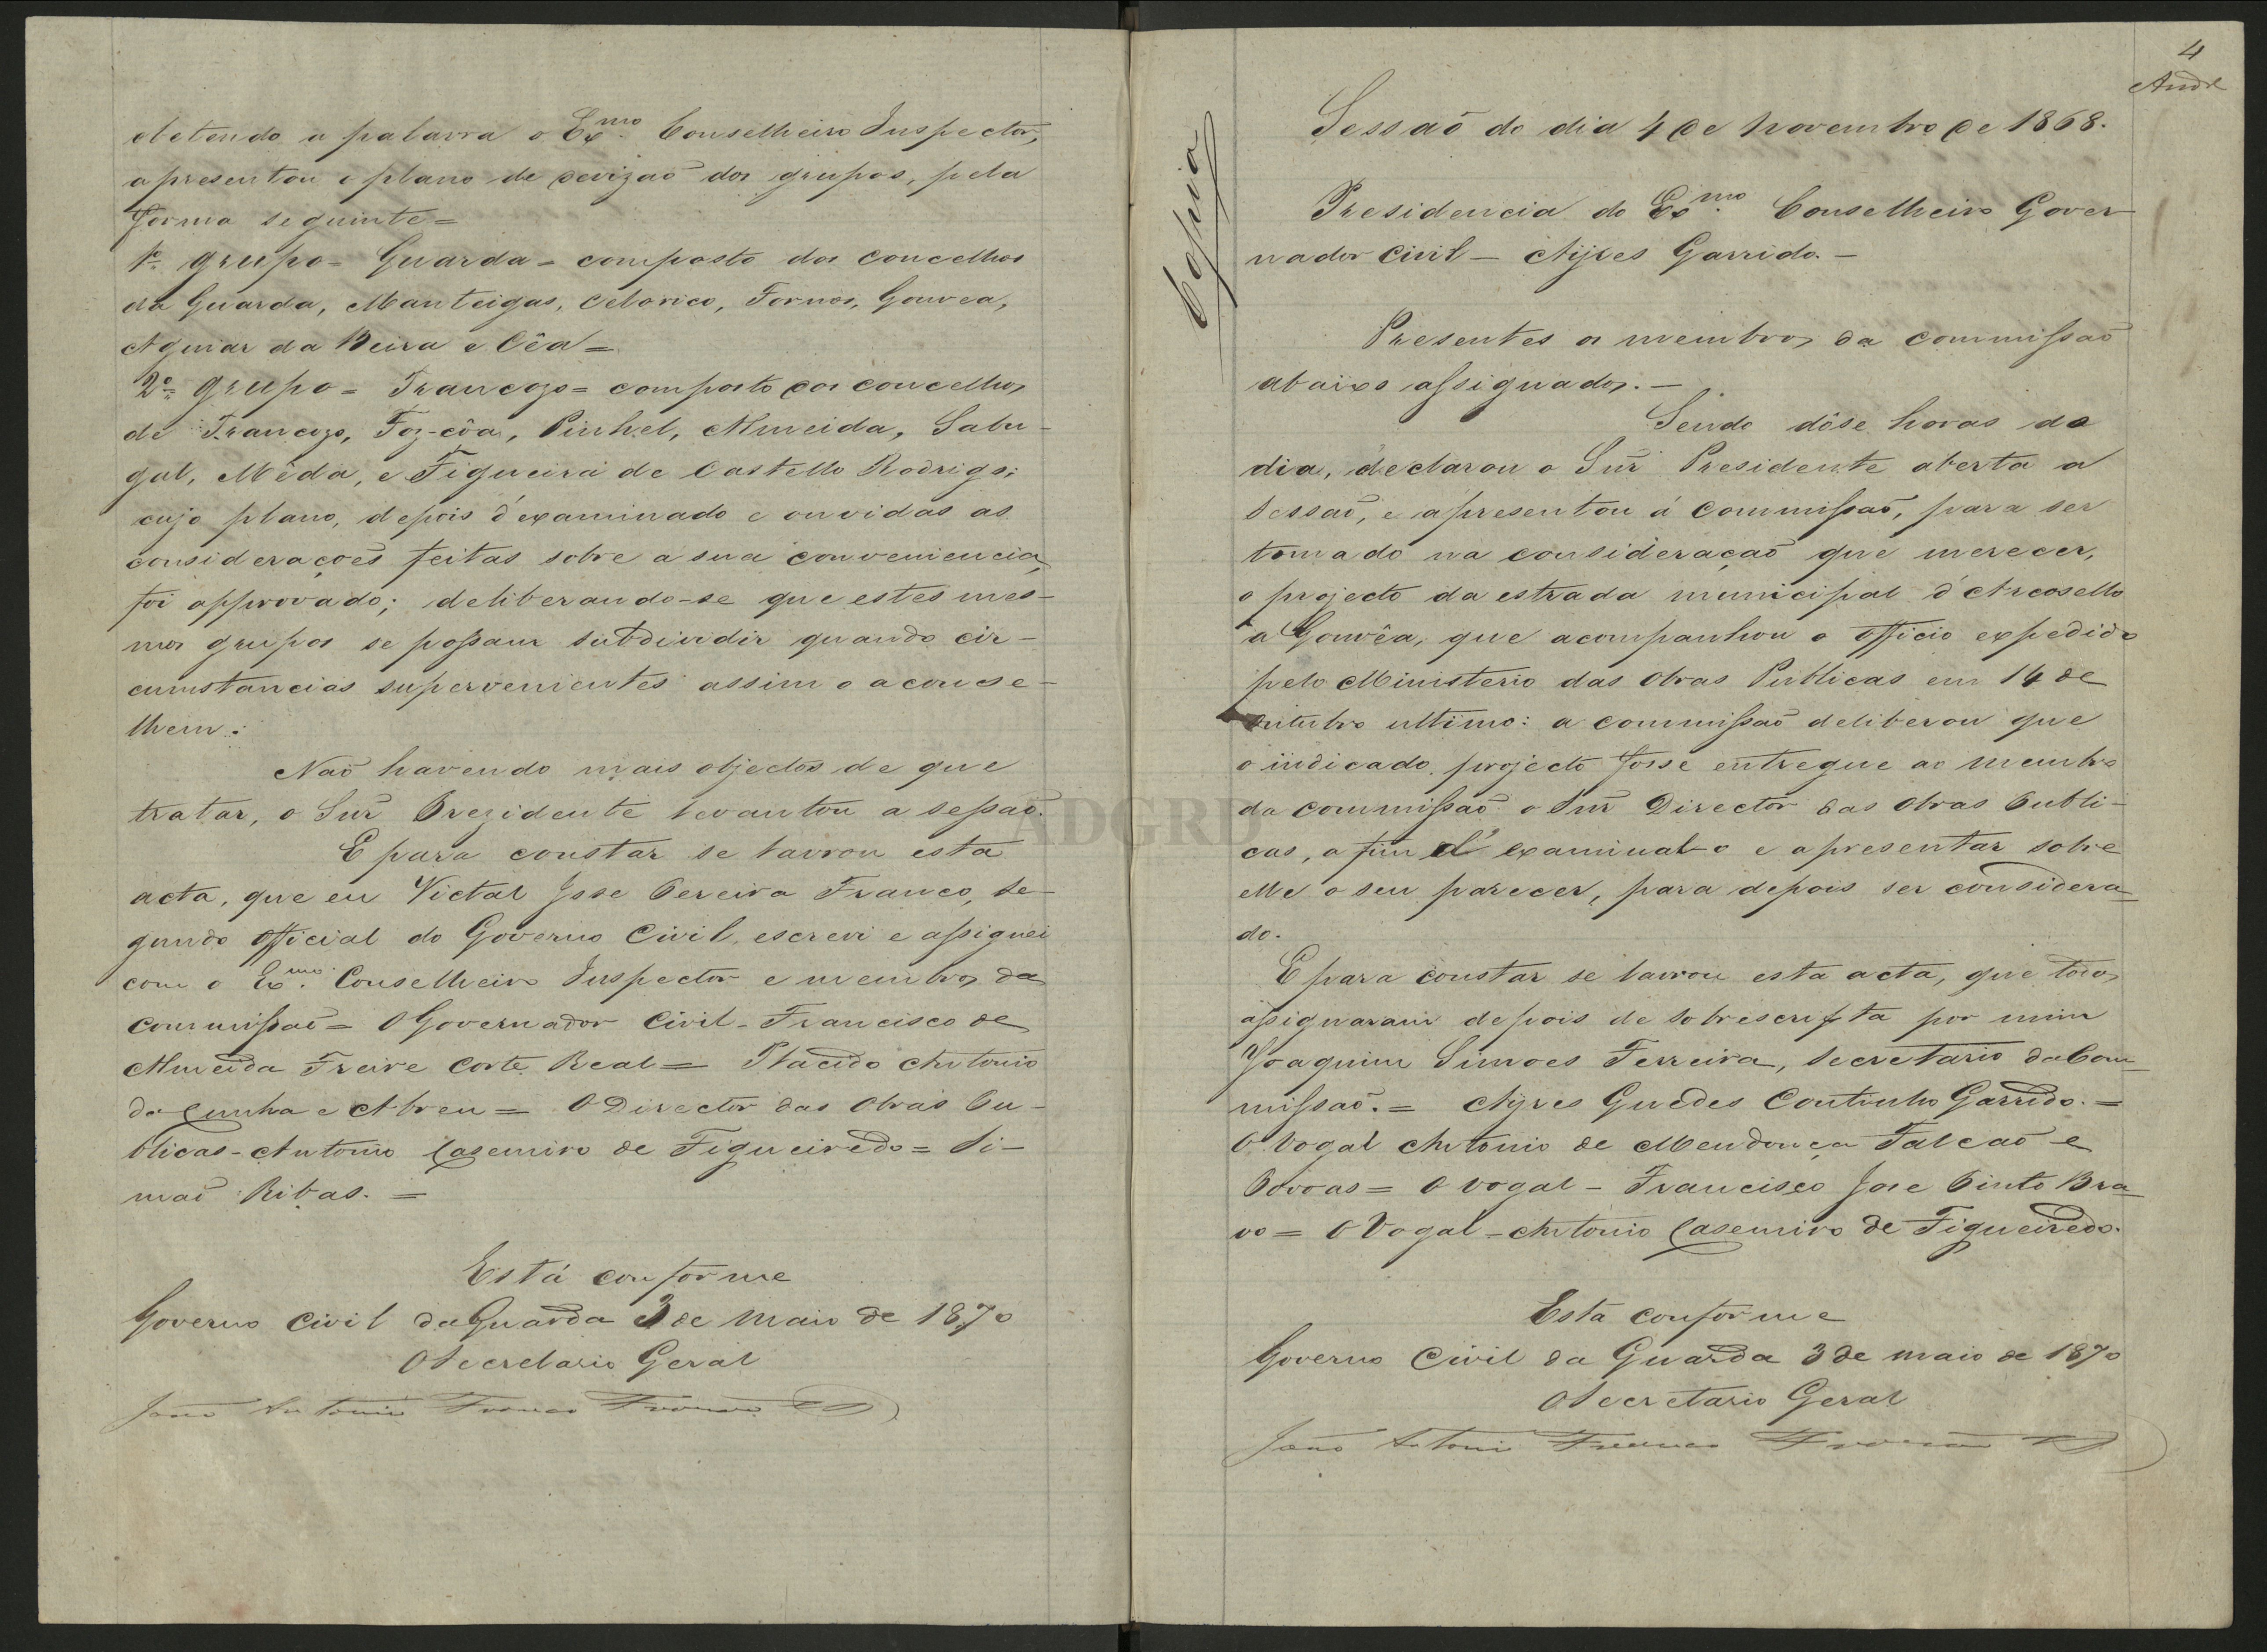 obtendo a palavra o Ex.mo Conselheiro Inspector,
apresentou o plano de devizaõ dos grupos, pela
forma seguinte =
1º grupo = Guarda = composto dos concelhos
da Guarda, Manteigas, Celorico, Fornos, Gouvea,
Aguiar da Beira e Cêa =
2º grupo = Trancozo = composto dos concelhos
de Trancozo, Foz-côa, Pinhel, Almeida, Sabu-
gal, Mêda, e Figueira de Castello Rodrigo;
cujo plano, depois d'examinado e ouvidas as
consideraçoẽs feitas sobre a sua conveniencia,
foi approvado; deliberando-se que estes mes-
mos grupos se possam subdividir quando cir-
cumstancias supervenientes assim o aconse-
lhem.
Naõ havendo mais objectos de que
tratar, o Snr Prezidente levantou a sessaõ.
E para constar se lavrou esta
acta, que eu Victal Jose Pereira Franco, se-
gundo Official do Governo Civil, escrevi e assignei
com o Ex.mo Conselheiro Inspector e membros da
Commissaõ = O Governador Civil - Francisco de
Almeida Freire Corte Real = Placido Antonio
da Cunha e Abreu = O Director das Obras Pu-
blicas - Antonio Casemiro de Figueiredo = Si-
maõ Ribas. =
Está conforme
Governo Civil da Guarda 3 de Maio de 1870
O Secretario Geral
João Antonio Franco
ADGRD
4
Copia
Sessaõ do dia 4 de Novembro de 1868.
Presidencia do Ex.mo Conselheiro Gover-
nador Civil - Ayres Garrido. -
Presentes os membros da commissaõ
abaixo assignados. -
Sendo dôse horas do
dia, declarou o Snr Presidente aberta a
sessaõ, e apresentou á Commissaõ, para ser
tomado na consideraçaõ que merecer,
o projecto da estrada municipal d'Arcosello
a Gouvêa, que acompanhou o officio expedido
pelo Ministerio das Obras Publicas em 14 de
outubro ultimo: a commissaõ deliberou que
o indicado projecto fosse entregue ao membro
da commissaõ o Snr Director das Obras Publi-
cas, a fim d'examinal-o e apresentar sobre
elle o seu parecer, para depois ser considera-
do.
E para constar se lavrou esta acta, que todos
assignaram depois de sobrescripta por mim
Joaquim Simoes Ferreira, Secretario da Com-
missaõ. = Ayres Guedes Coutinho Garrido. =
O Vogal Antonio de Mendonça Falcaõ e
Povoas = O vogal - Francisco Jose Pinto Bra-
vo = O Vogal - Antonio Casemiro de Figueiredo.
Está conforme
Governo Civil da Guarda 3 de maio de 1870
O Secretario Geral
João Antonio Franco